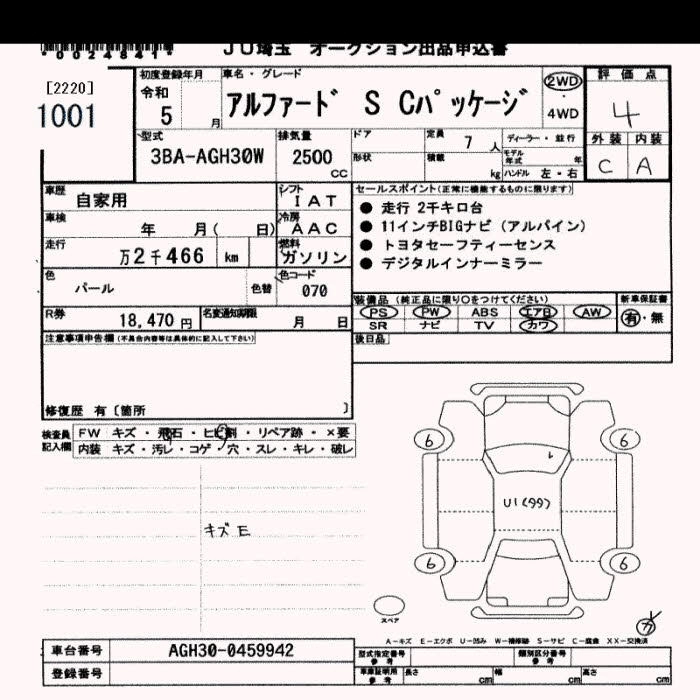 *0024841*
JU埼玉 オークション出品申込書
[2220]
1001
初度登録年月
令和
5 月
車名・グレード
アルファード S Cパッケージ
2WD
・
4WD
評価点
4
外装 内装
C A
型式
3BA-AGH30W
排気量
2500
CC
ドア
形状
定員
7 人
積載
kg
ディーラー・並行
モデル年式 年
ハンドル 左・右
車歴
自家用
シフト
IAT
車検
年 月( 日)
冷房
AAC
走行
万2千466 km
燃料
ガソリン
色
パール
色替
色コード
070
R券
18,470 円
名変通知期限
月 日
セールスポイント(正常に機能するものに限ります)
● 走行 2千キロ台
● 11インチBIGナビ (アルパイン)
● トヨタセーフティーセンス
● デジタルインナーミラー
装備品 (純正品に限り○をつけてください)
PS PW ABS エアB AW
SR ナビ TV カワ
新車保証書
有・無
後日品
注意事項申告欄(不具合内容等は具体的に記入して下さい)
修復歴 有〔箇所 〕
検査員
記入欄
FW キズ・飛石・ヒビ割・リペア跡・×要
内装 キズ・汚レ・コゲ・穴・スレ・キレ・破レ
キズ E
6 6
U1(99)
6 6
スペア
A-キズ E-エクボ U-凹み W-補修跡 S-サビ C-腐食 XX-交換済
車台番号
AGH30-0459942
登録番号
型式指定番号
参考
類別区分番号
参考
車庫証明用
参考
長さ cm
幅 cm
高さ cm